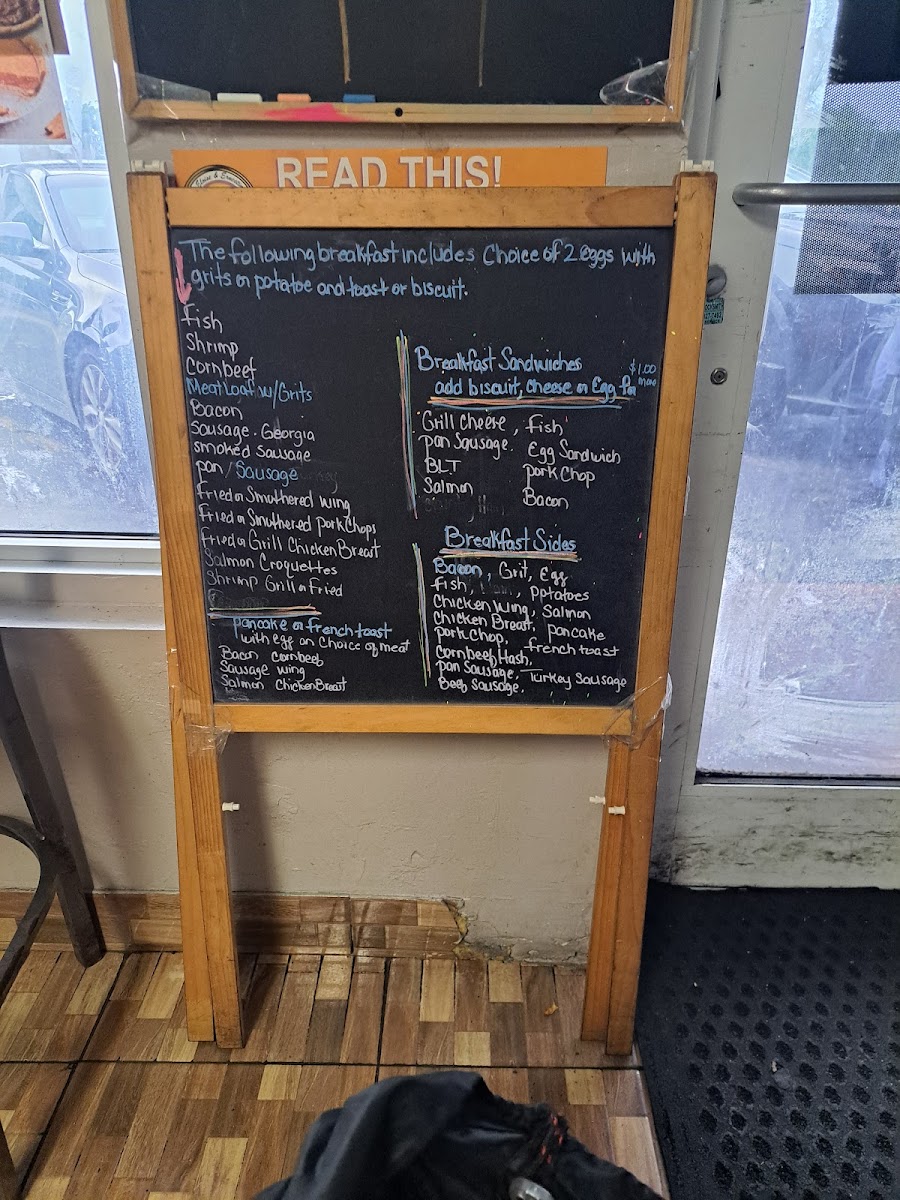 READ THIS!
The following breakfast includes Choice of 2 eggs with
grits or potatoe and toast or biscuit.
Fish
Shrimp
Cornbeef
Meat Loaf w/Grits
Bacon
Sausage. Georgia
smoked Sausage
pan / Sausage
Fried or Smuthered wing
Fried or Smuthered porkChops
Fried or Grill Chicken Breast
Salmon Croquettes
Shrimp Grill or Fried
pancake or french toast
with egg or Choice of meat
Bacon Cornbeef
Sausage wing
Salmon Chicken Breast
Breakfast Sandwiches $1.00
add biscuit, cheese or Egg For more
Grill Cheese, Fish
pan Sausage. Egg Sandwich
BLT porkChop
Salmon Bacon
Breakfast Sides
Bacon, Grit, Egg
Fish, , pptatoes
Chicken Wing, Salmon
Chicken Breast, pancake
porkChop, french toast
Cornbeef Hash,
pan Sausage, Turkey Sausage
Beef Sausage.